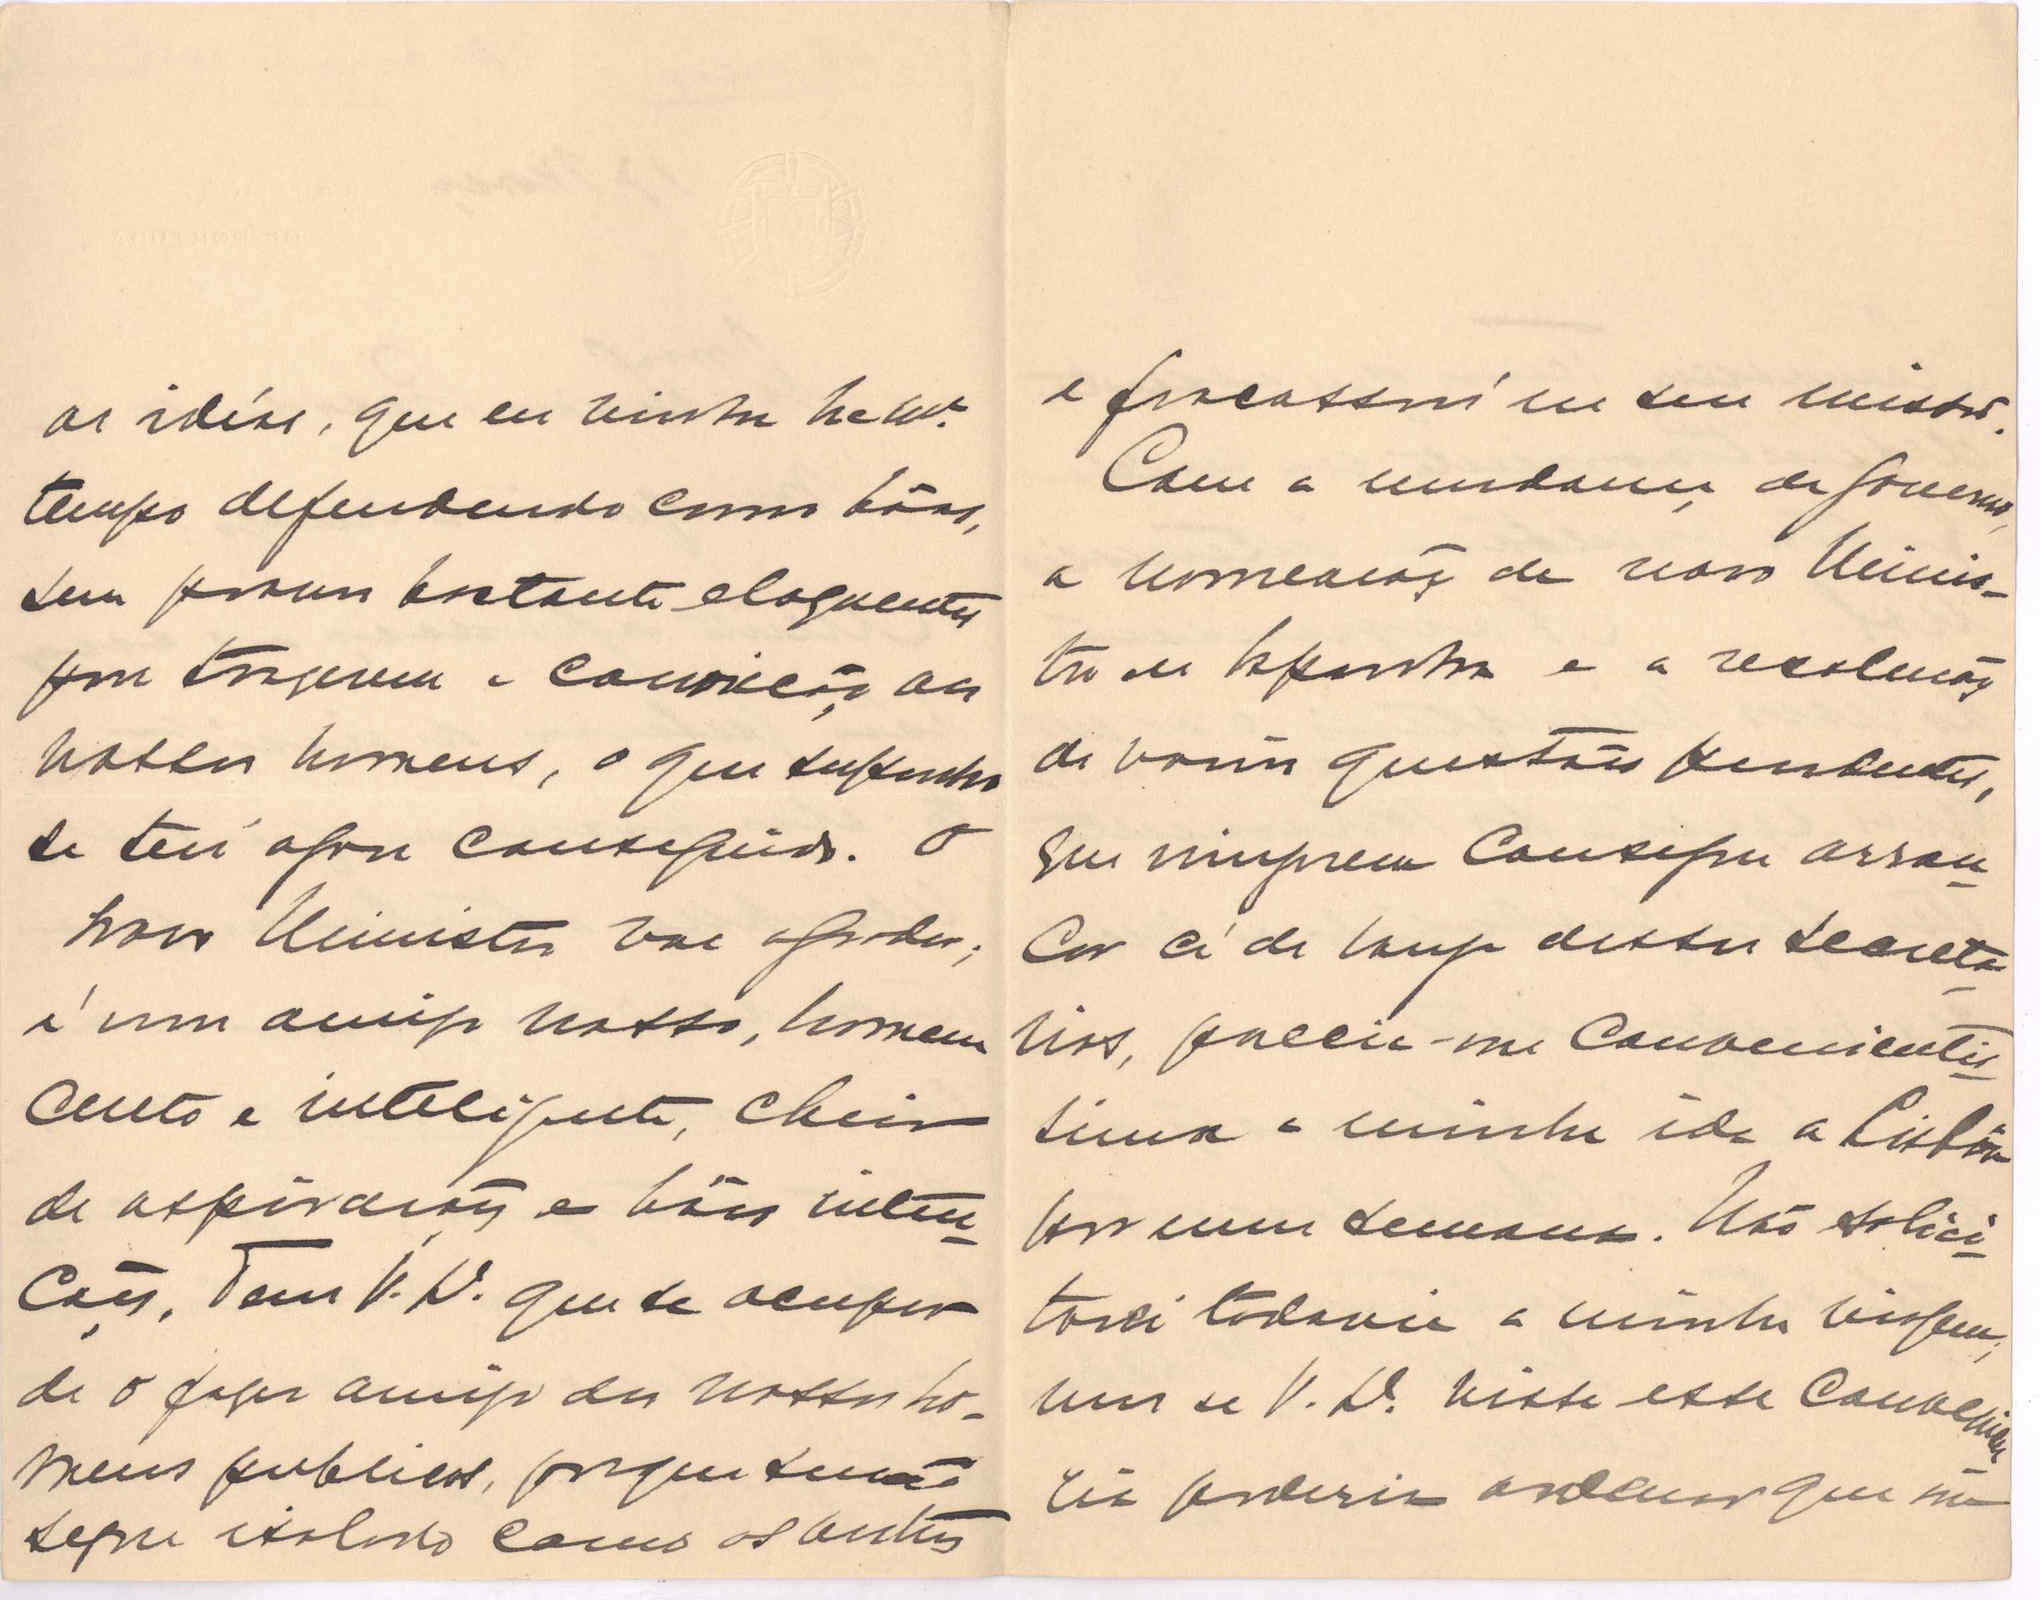 as idéas, que eu vinha ha mto.
tempo defendendo como bôas,
sem provas bastante eloquentes
para trazerem a convicção aos
nossos homens, o que supponho
se terá agora conseguido. O
novo Ministro vae agradar;
é um amigo nosso, homem
culto e inteligente, cheio
de aspirações e bôas inten-
ções. Tem V. Exª. que se occupar
de o fazer amigo dos nossos ho-
mens publicos, porque senão
segue isolado como os outros
e fracassará na sua missão.
Com a mudança de Governo,
a nomeação de novo Minis-
tro em Espanha e a resolução
de varias questões pendentes,
que ninguem consegue arran-
car cá de longe dessas secreta-
rias, parecia-me convenientis-
sima a minha ida a Lisbôa
por uma semana. Não solici-
tarei todavia a minha viagem;
mas se V. Exª. visse essa convenien-
cia poderia ordenar que me